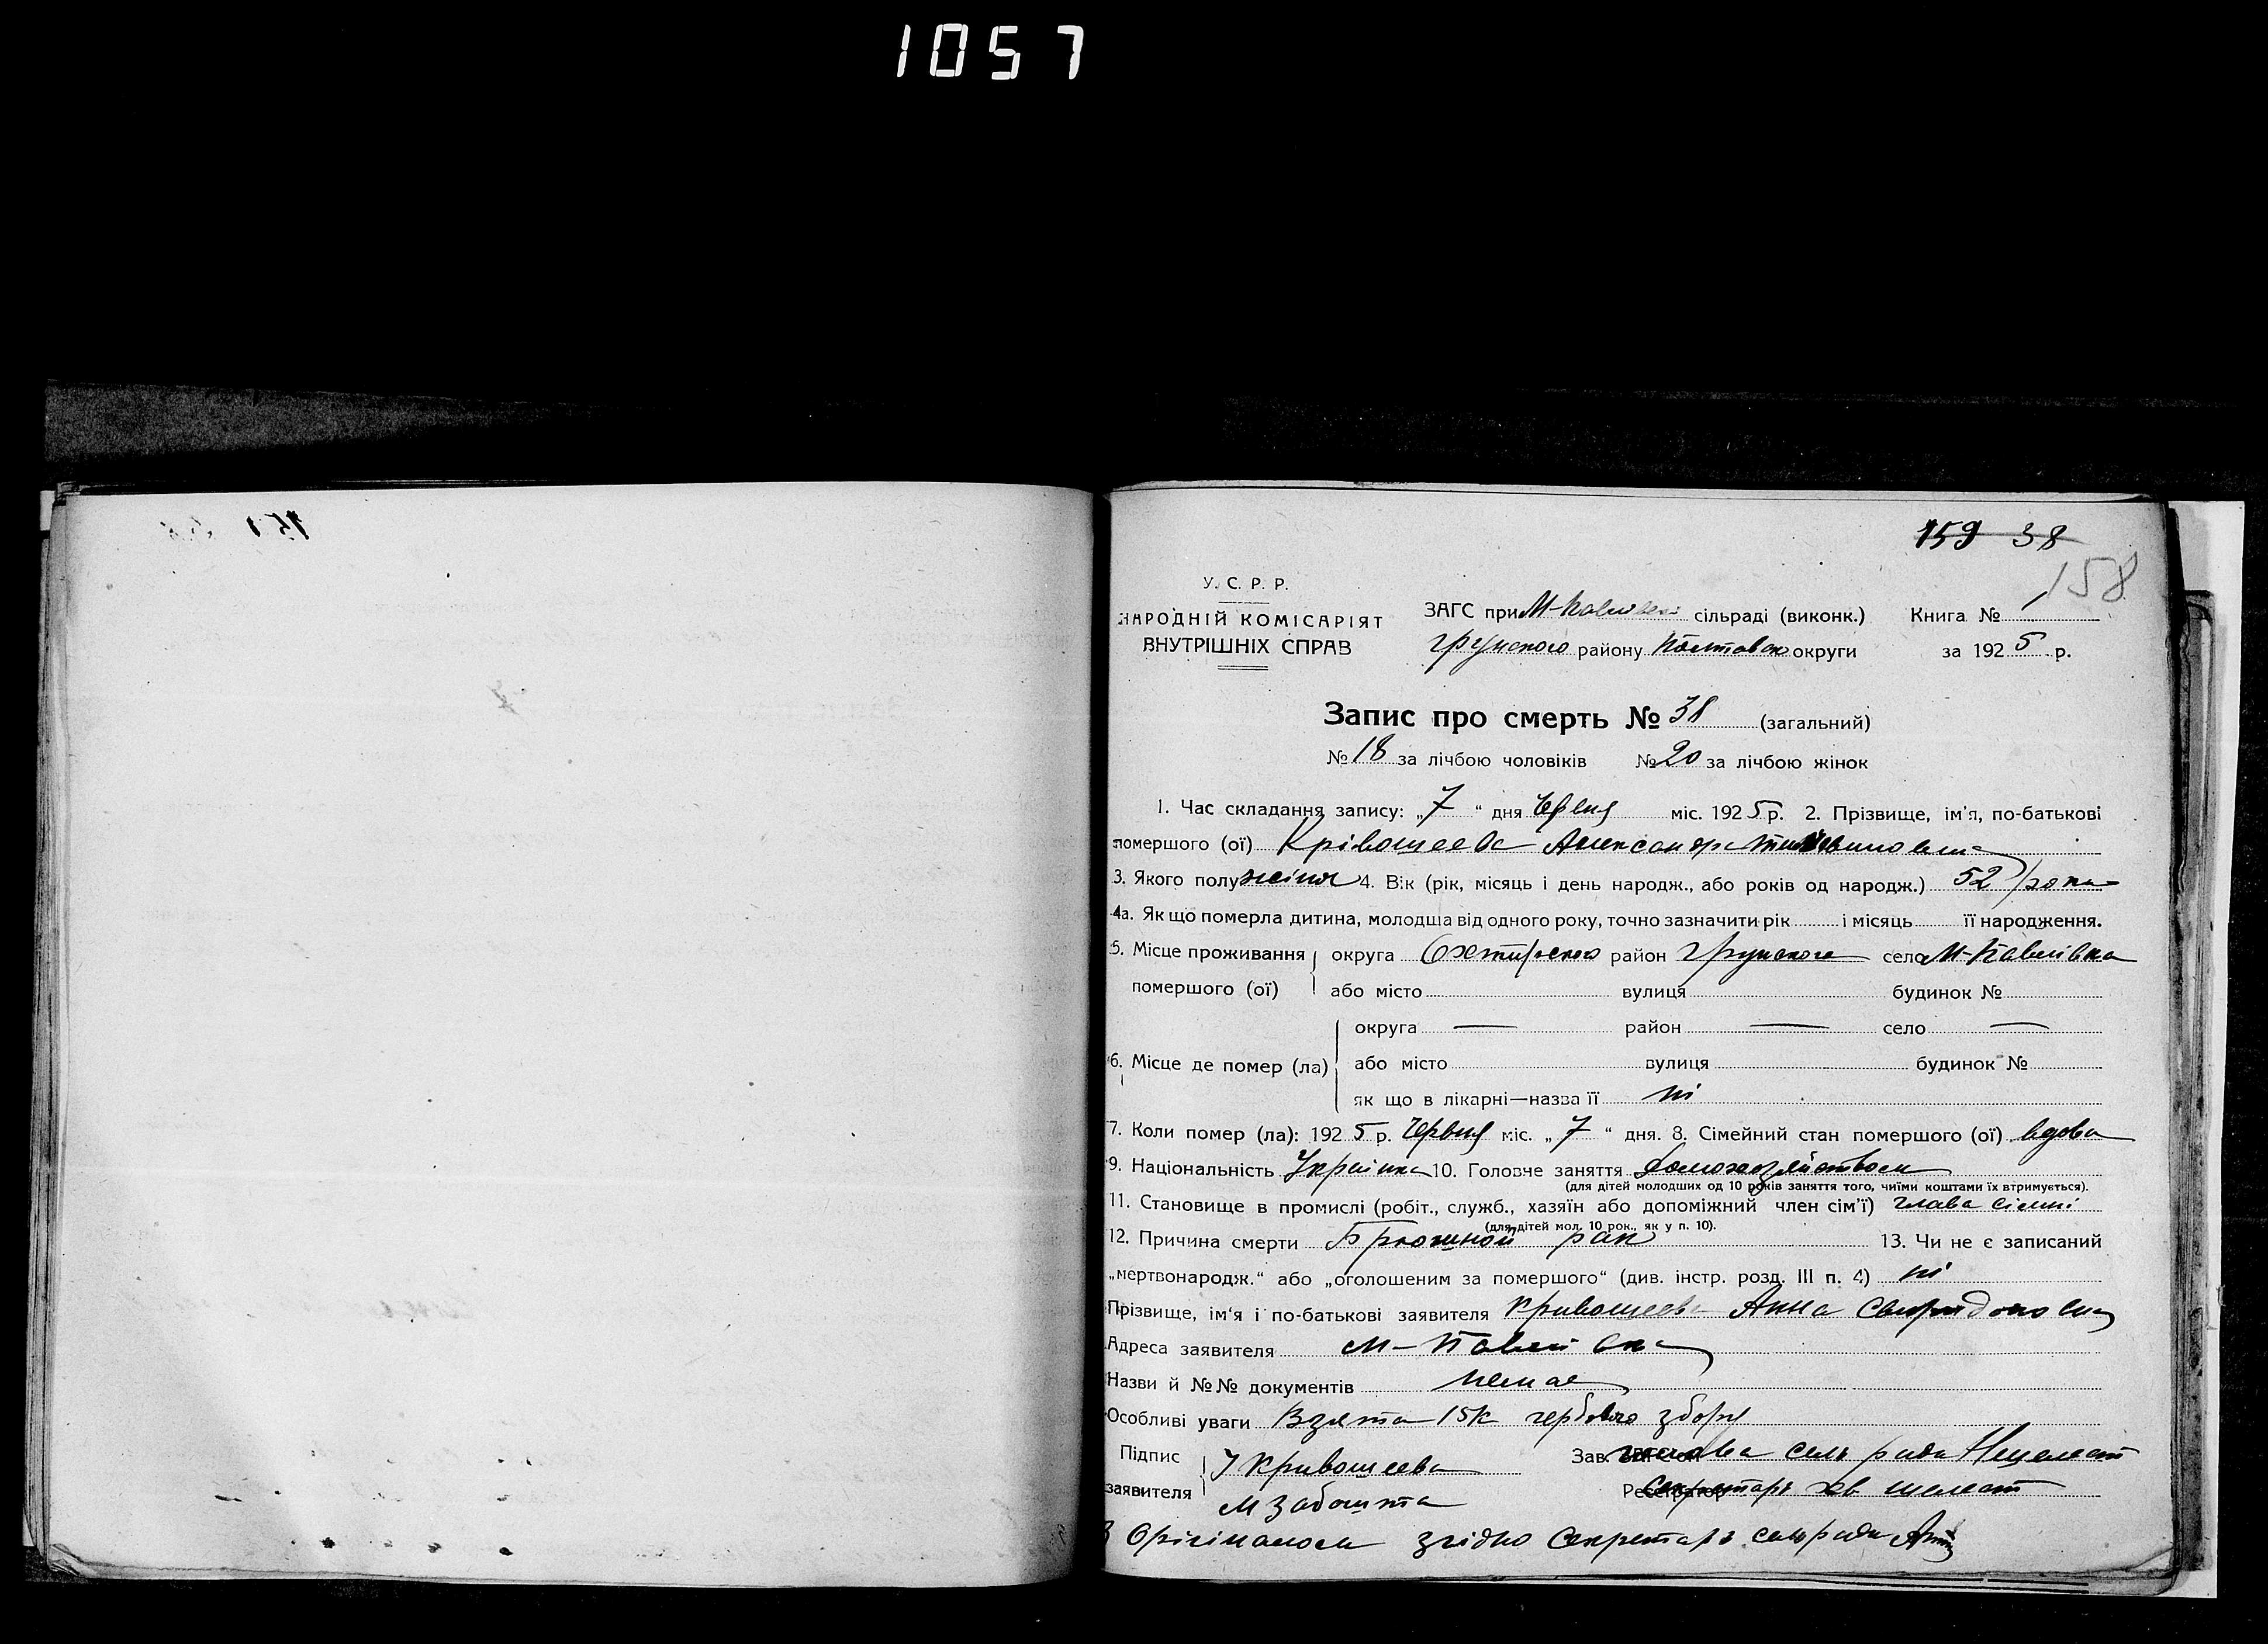 1057
159 38
158
У. С. Р. Р.
НАРОДНІЙ КОМІСАРІЯТ
ВНУТРІШНІХ СПРАВ
ЗАГС при М-Павлівськ сільраді (виконк.) Книга № 1
Грунського району Полтавськ округи за 1925 р.
Запис про смерть № 38 (загальний)
№ 18 за лічбою чоловіків № 20 за лічбою жінок
1. Час складання запису: „7“ дня Червня міс. 1925 р. 2. Прізвище, ім'я, по-батькові
помершого (ої) Крівошеева Александра
3. Якого полу жіноч 4. Вік (рік, місяць і день народж., або років од народж.) 52 роки
4а. Як що померла дитина, молодша від одного року, точно зазначити рік і місяць її народження.
5. Місце проживання округа Охтирского район Грунского село М-Павлівка
помершого (ої) або місто вулиця будинок №
округа — район — село —
6. Місце де помер (ла) або місто вулиця будинок №
як що в лікарні—назва її ні
7. Коли помер (ла): 1925 р. Червня міс. „7“ дня. 8. Сімейний стан помершого (ої) вдова
9. Національність Українка 10. Головче заняття домохозяйством
(для дітей молодших од 10 років заняття того, чиїми коштами їх втримується).
11. Становище в промислі (робіт., служб., хазяїн або допоміжний член сім'ї) глава сімні
(для дітей мол. 10 рок., як у п. 10).
12. Причина смерти Брюшной рак 13. Чи не є записаний
„мертвонародж.“ або „оголошеним за помершого“ (див. інстр. розд. III п. 4) ні
Прізвище, ім'я і по-батькові заявителя Кривошеева Анна Свиридоновна
Адреса заявителя М-Павлівка
Назви й №№ документів немае
Особливі уваги Взята 15к гербового збору
Підпис Кривошеева Зав. ЗАГС'ом голова сель ради Шелест
заявителя М Забошта Реєстратор Секретарь Шелест
З Орігіналом згідно Секретарь сельради